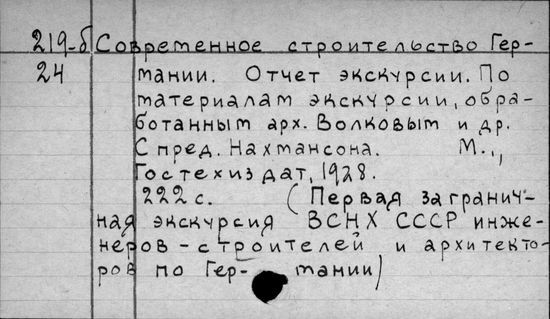 219-б Современное строительство Гер-
24 мании. Отчет экскурсии. По
материалам экскурсии, обра-
ботанным арх. Волковым и др.
С пред. Нахмансона. М.,
Гостехиздат, 1928.
222 с. (Первая загранич-
ная экскурсия ВСНХ СССР инже-
неров-строителей и архитекто-
ров по Гер- мании)